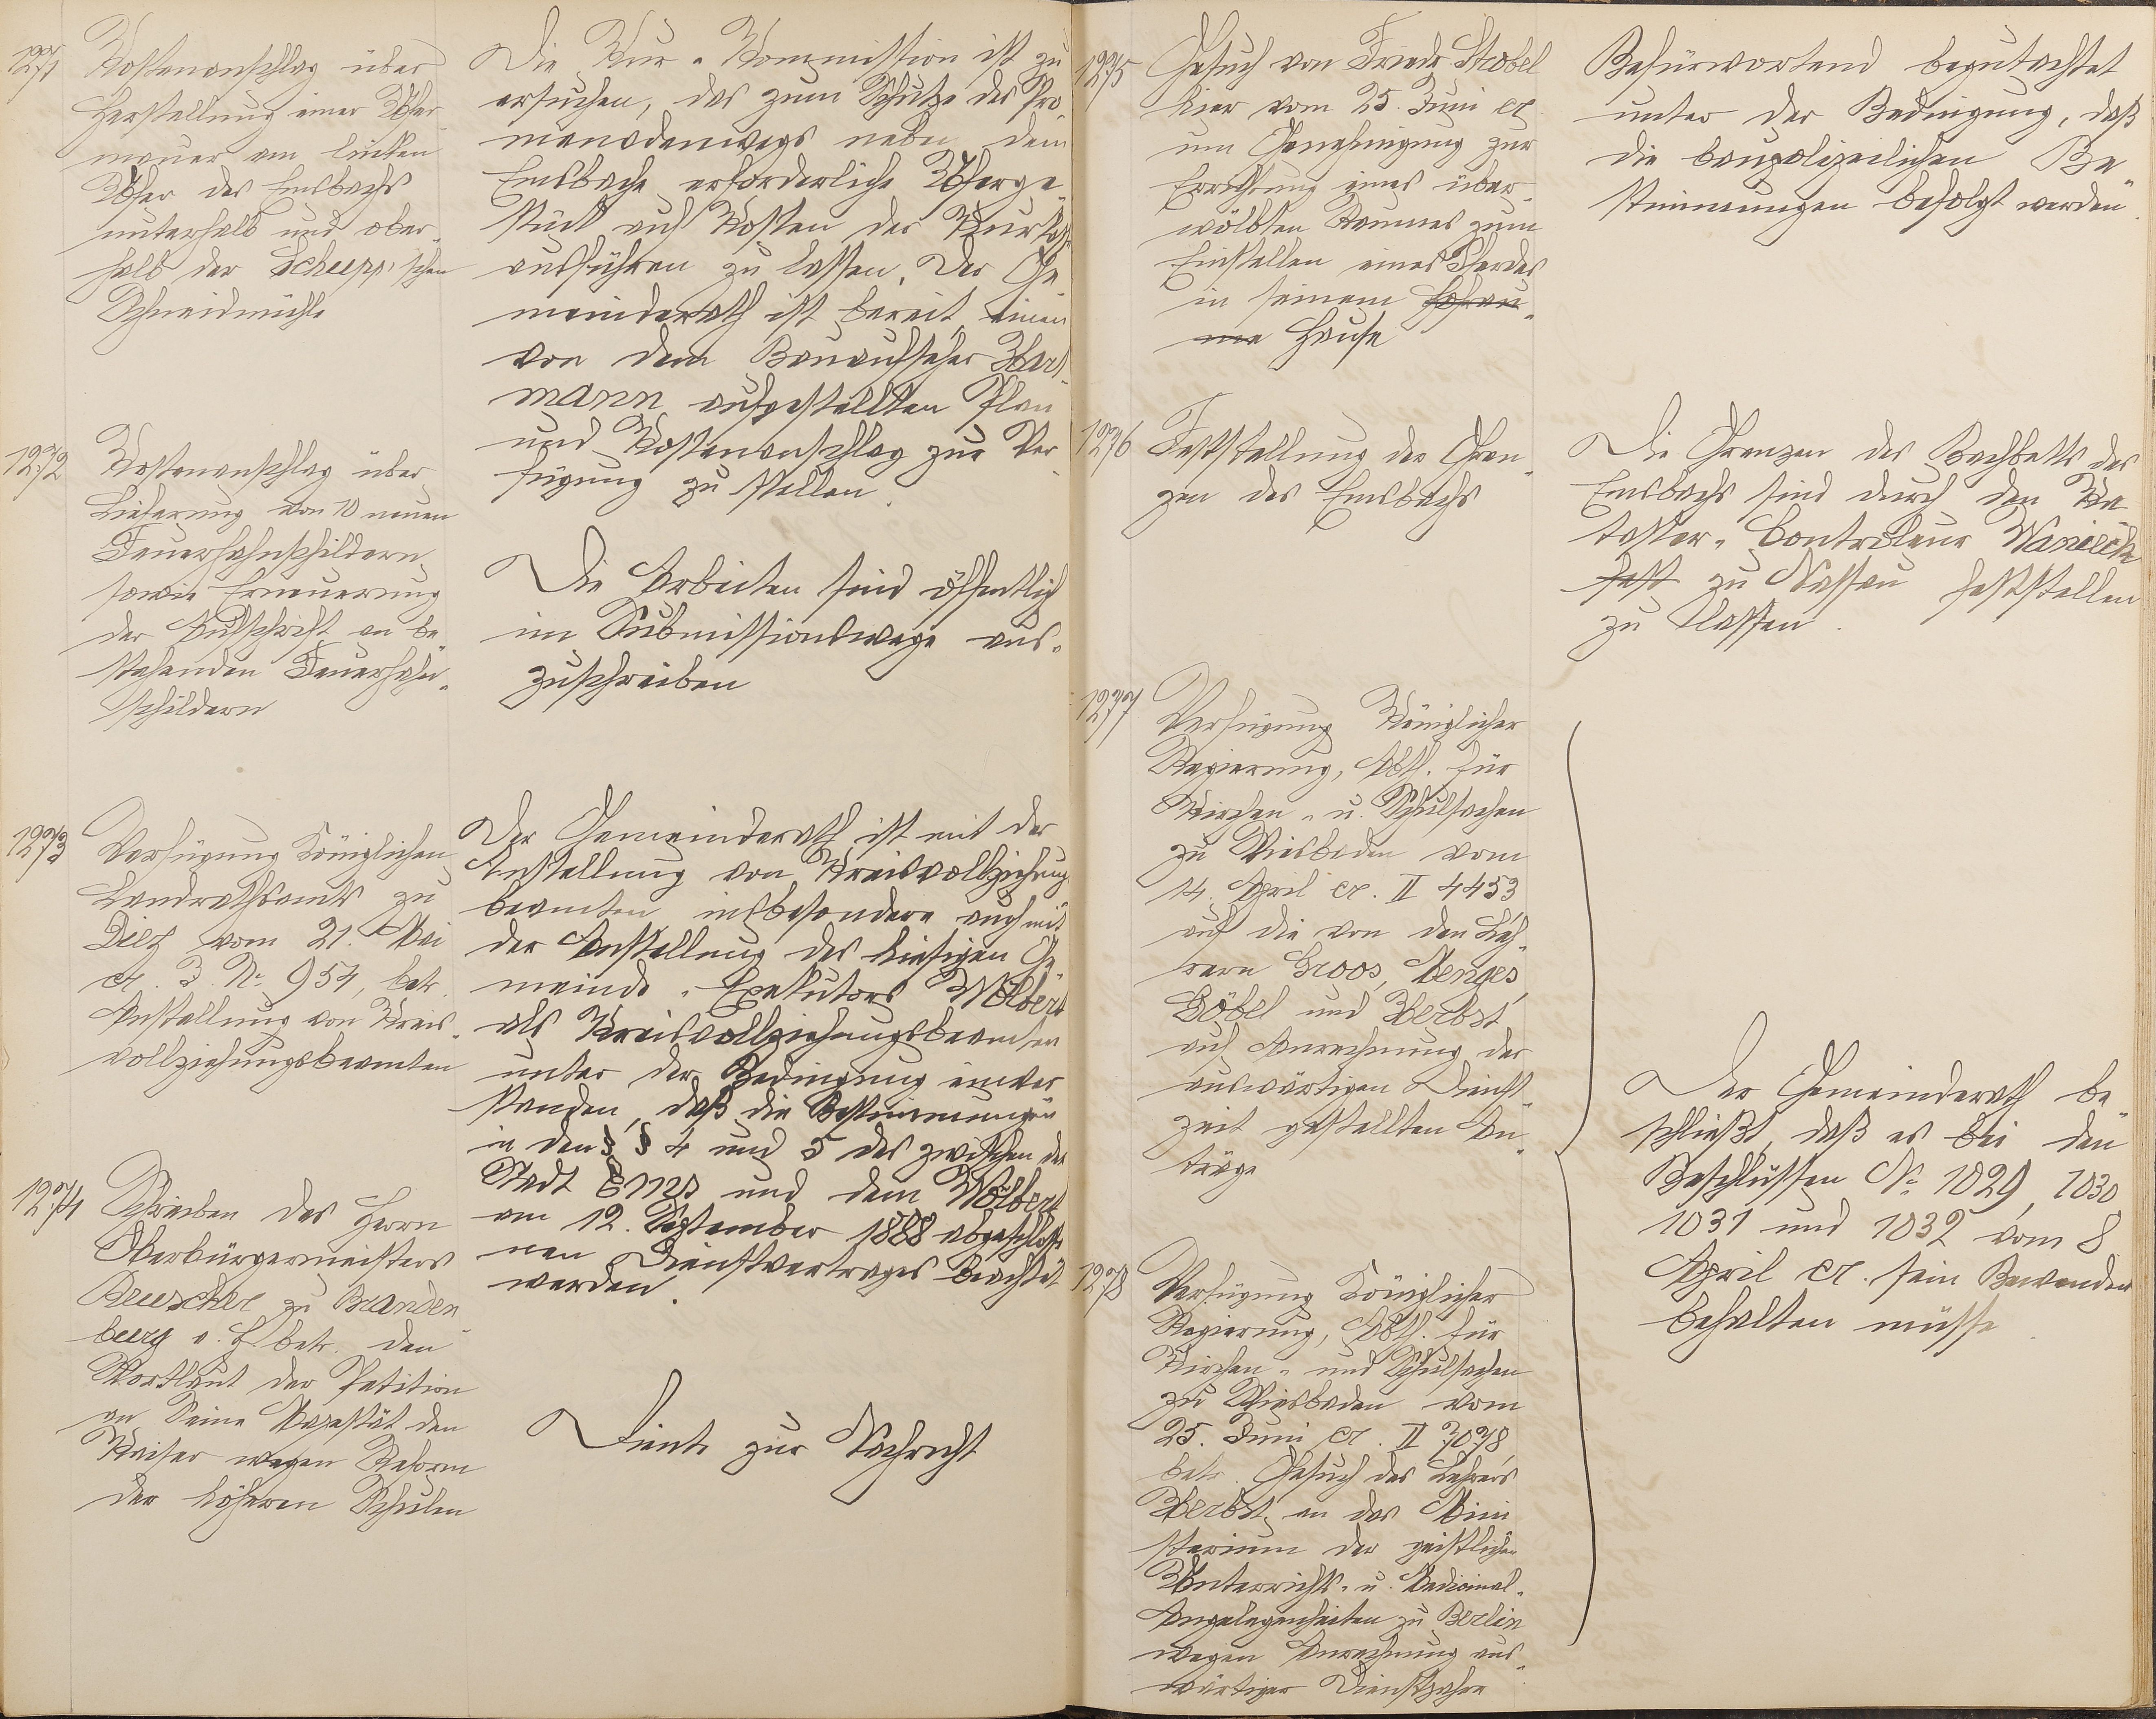 1271
Kostenanschlag über
Herstellung einer Ufer-
mauer am linken
Ufer des Emsbachs
unterhalb und ober-
halb der Schupp'schen
Schneidmühle
Die Kur-Kommission ist zu
ersuchen, das zum Schutze des Pro-
menadenwegs neben dem
Emsbache erforderliche Uferge-
stück auf Kosten der Kurkasse
ausführen zu lassen. Der Ge-
meinderath ist bereit, einen
von dem Bauaufseher Hart-
mann aufgestellten Plan
und Kostenanschlag zur Ver-
fügung zu stellen.
1272
Kostenanschlag über
Lieferung von 10 neuen
Feuerhahnschildern
sowie Erneuerung
der Aufschrift an be-
stehenden Feuerhahn-
schildern
Die Arbeiten sind öffentlich
im Submissionswege aus-
zuschreiben
1273
Verfügung Königlichen
Landrathsamts zu
Diez vom 21. Mai
cr. J. No 954, betr.
Anstellung von Kreis-
vollziehungsbeamten
Der Gemeinderath ist mit der
Anstellung von Kreisvollziehungs-
beamten insbesondere auch mit
der Anstellung des hiesigen Ge-
meinde-Exekutors Wölbert
als Kreisvollziehungsbeamten
unter der Bedingung einver-
standen, daß die Bestimmungen
in den § § 4 und 5 des zwischen der
Stadt Ems und dem Wölbert
am 12. September 1888 abgeschlosse-
nen Dienstvertrages beachtet
werden.
1274
Schreiben des Herrn
Oberbürgermeisters
Reuscher zu Branden-
burg a. H. betr. den
Wortlaut der Petition
an Seine Majestät den
Kaiser wegen Reform
der höheren Schulen
Diente zur Nachricht
1275
Gesuch von Friedr. Strobel
hier vom 25. Juni cr.
um Genehmigung zur
Errichtung eines über-
wölbten Raumes zum
Einstellen eines Pferdes
in seinem
Hause
Befürwortend begutachtet
unter der Bedingung, daß
die baupolizeilichen Be-
stimmungen befolgt werden.
1276
Feststellung der Gren-
zen des Emsbachs
Die Grenzen des Bachbetts des
Emsbachs sind durch den Ka-
taster-Controleur
fest zu Nassau feststellen
zu lassen.
1277
Verfügung Königlicher
Regierung, Abth. für
Kirchen- u. Schulsachen
zu Wiesbaden vom
14. April cr. II 4453
auf die von den Leh-
rern Groos, Menges,
Göbel und Herbst
auf Anrechnung der
auswärtigen Dienst-
zeit gestellten An-
träge
1278
Verfügung Königlicher
Regierung, Abth. für
Kirchen- und Schulsachen
zu Wiesbaden vom
25. Juni cr. II 7078,
betr. Gesuch des Lehrers
Herbst an das Mini-
sterium der geistlichen
Unterrichts- u. Medicinal-
Angelegenheiten zu Berlin
wegen Anrechnung aus-
wärtiger Dienstjahre
Der Gemeinderath be-
schließt, daß es bei den
Beschlüssen No 1029, 1030
1031 und 1032 vom 8
April cr. sein Bewenden
behalten müsse.